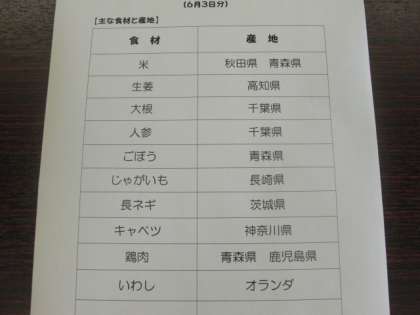 (6月3日分)
【主な食材と産地】
食 材 産 地
米 秋田県 青森県
生姜 高知県
大根 千葉県
人参 千葉県
ごぼう 青森県
じゃがいも 長崎県
長ネギ 茨城県
キャベツ 神奈川県
鶏肉 青森県 鹿児島県
いわし オランダ